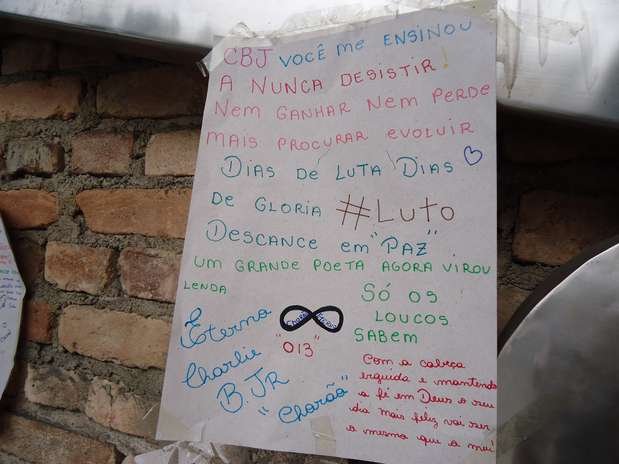 CBJ VOCÊ ME ENSINOU
A NUNCA DESISTIR!
NEM GANHAR NEM PERDE
MAIS PROCURAR EVOLUIR
DIAS DE LUTA DIAS
DE GLORIA #LUTO
DESCANCE EM "PAZ"
UM GRANDE POETA AGORA VIROU
LENDA
SÓ OS
LOUCOS
SABEM
Eterno
Charlie
B. JR
"Chorão"
"013"
Com a cabeça
erguida e mantendo
a fé em Deus o seu
dia mais feliz vai ser
o mesmo que o meu